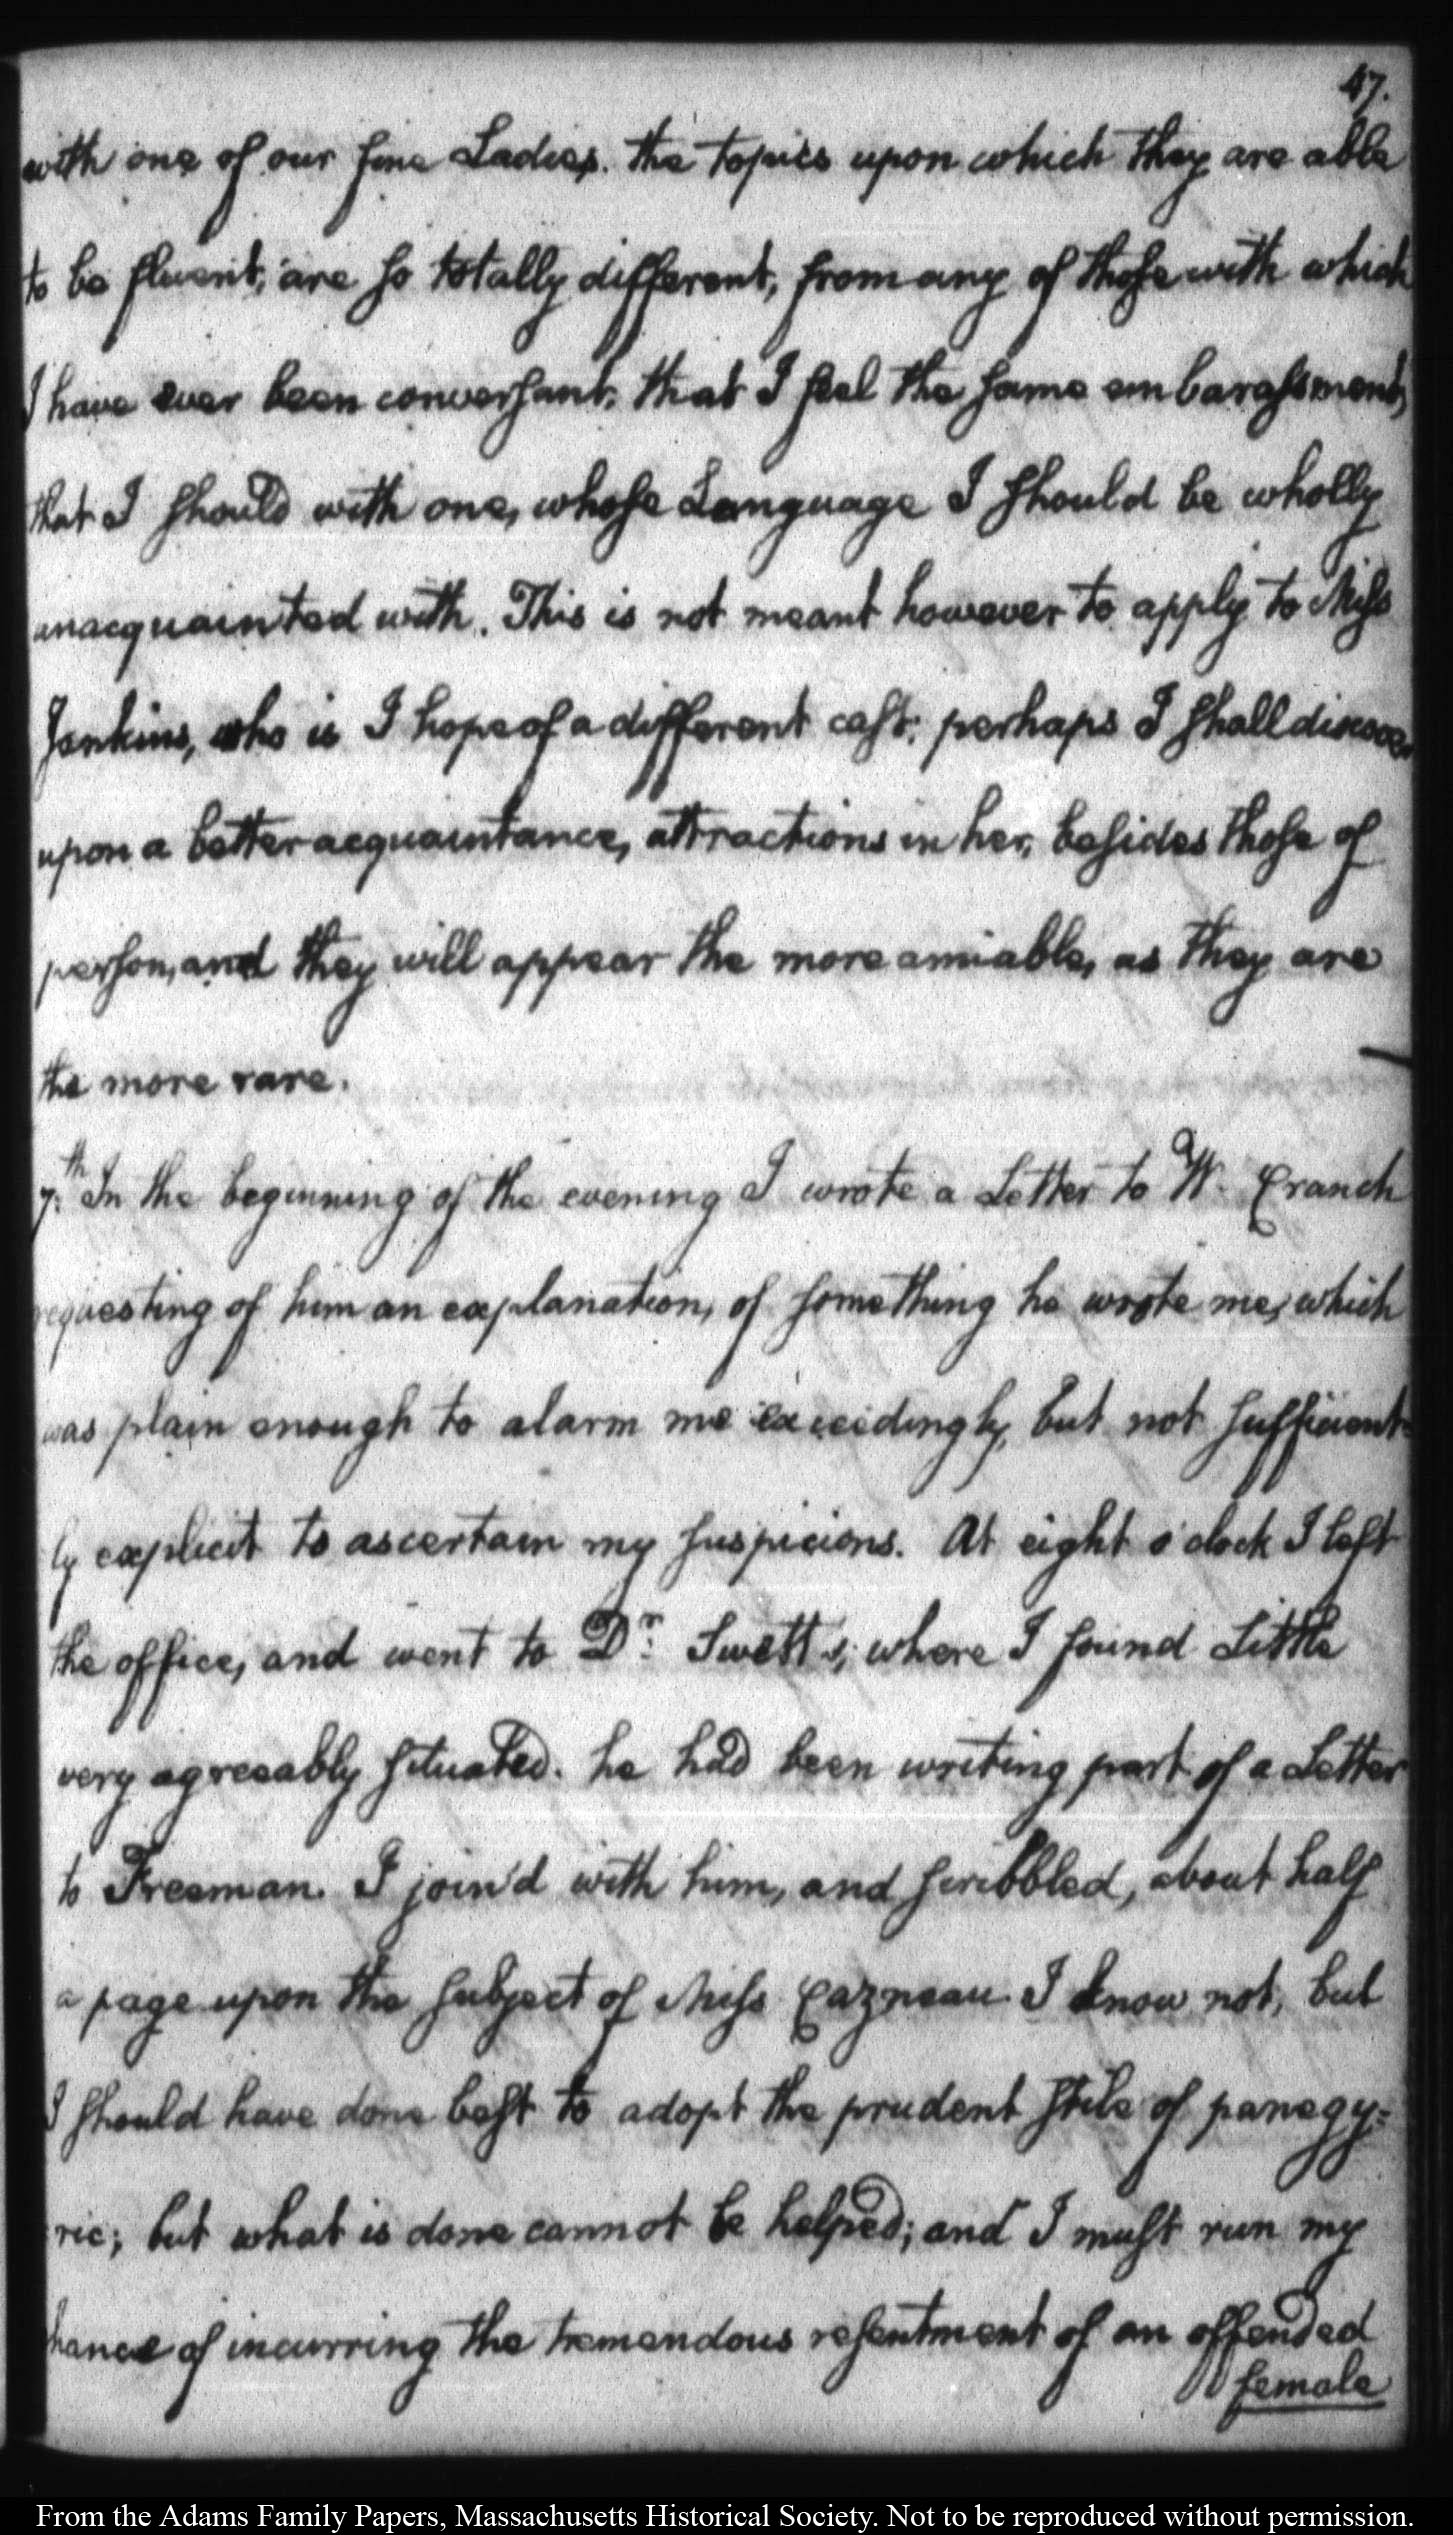 47.
with one of our fine Ladies. the topics upon which they are able
to be fluent, are so totally different, from any of those with which
I have ever been conversant, that I feel the same embarassment,
that I should with one, whose Language I should be wholly
unacquainted with. This is not meant however to apply to Miss
Jenkins, who is I hope of a different cast; perhaps I shall discover
upon a better acquaintance, attractions in her, besides those of
person, and they will appear the more amiable, as they are
the more rare.
7:th In the beginning of the evening I wrote a Letter to W. Cranch
requesting of him an explanation, of something he wrote me, which
was plain enough to alarm me exceedingly, but not sufficient-
ly explicit to ascertain my suspicions. At eight o'clock I left
the office, and went to Dr: Swett's; where I found Little
very agreeably situated. he had been writing part of a Letter
to Freeman. I join'd with him, and scribbled, about half
a page upon the subject of Miss Cazneau. I know not, but
I should have done best to adopt the prudent stile of panegy=
ric; but what is done cannot be helped; and I must run my
chance of incurring the tremendous resentment of an offended
female
From the Adams Family Papers, Massachusetts Historical Society. Not to be reproduced without permission.